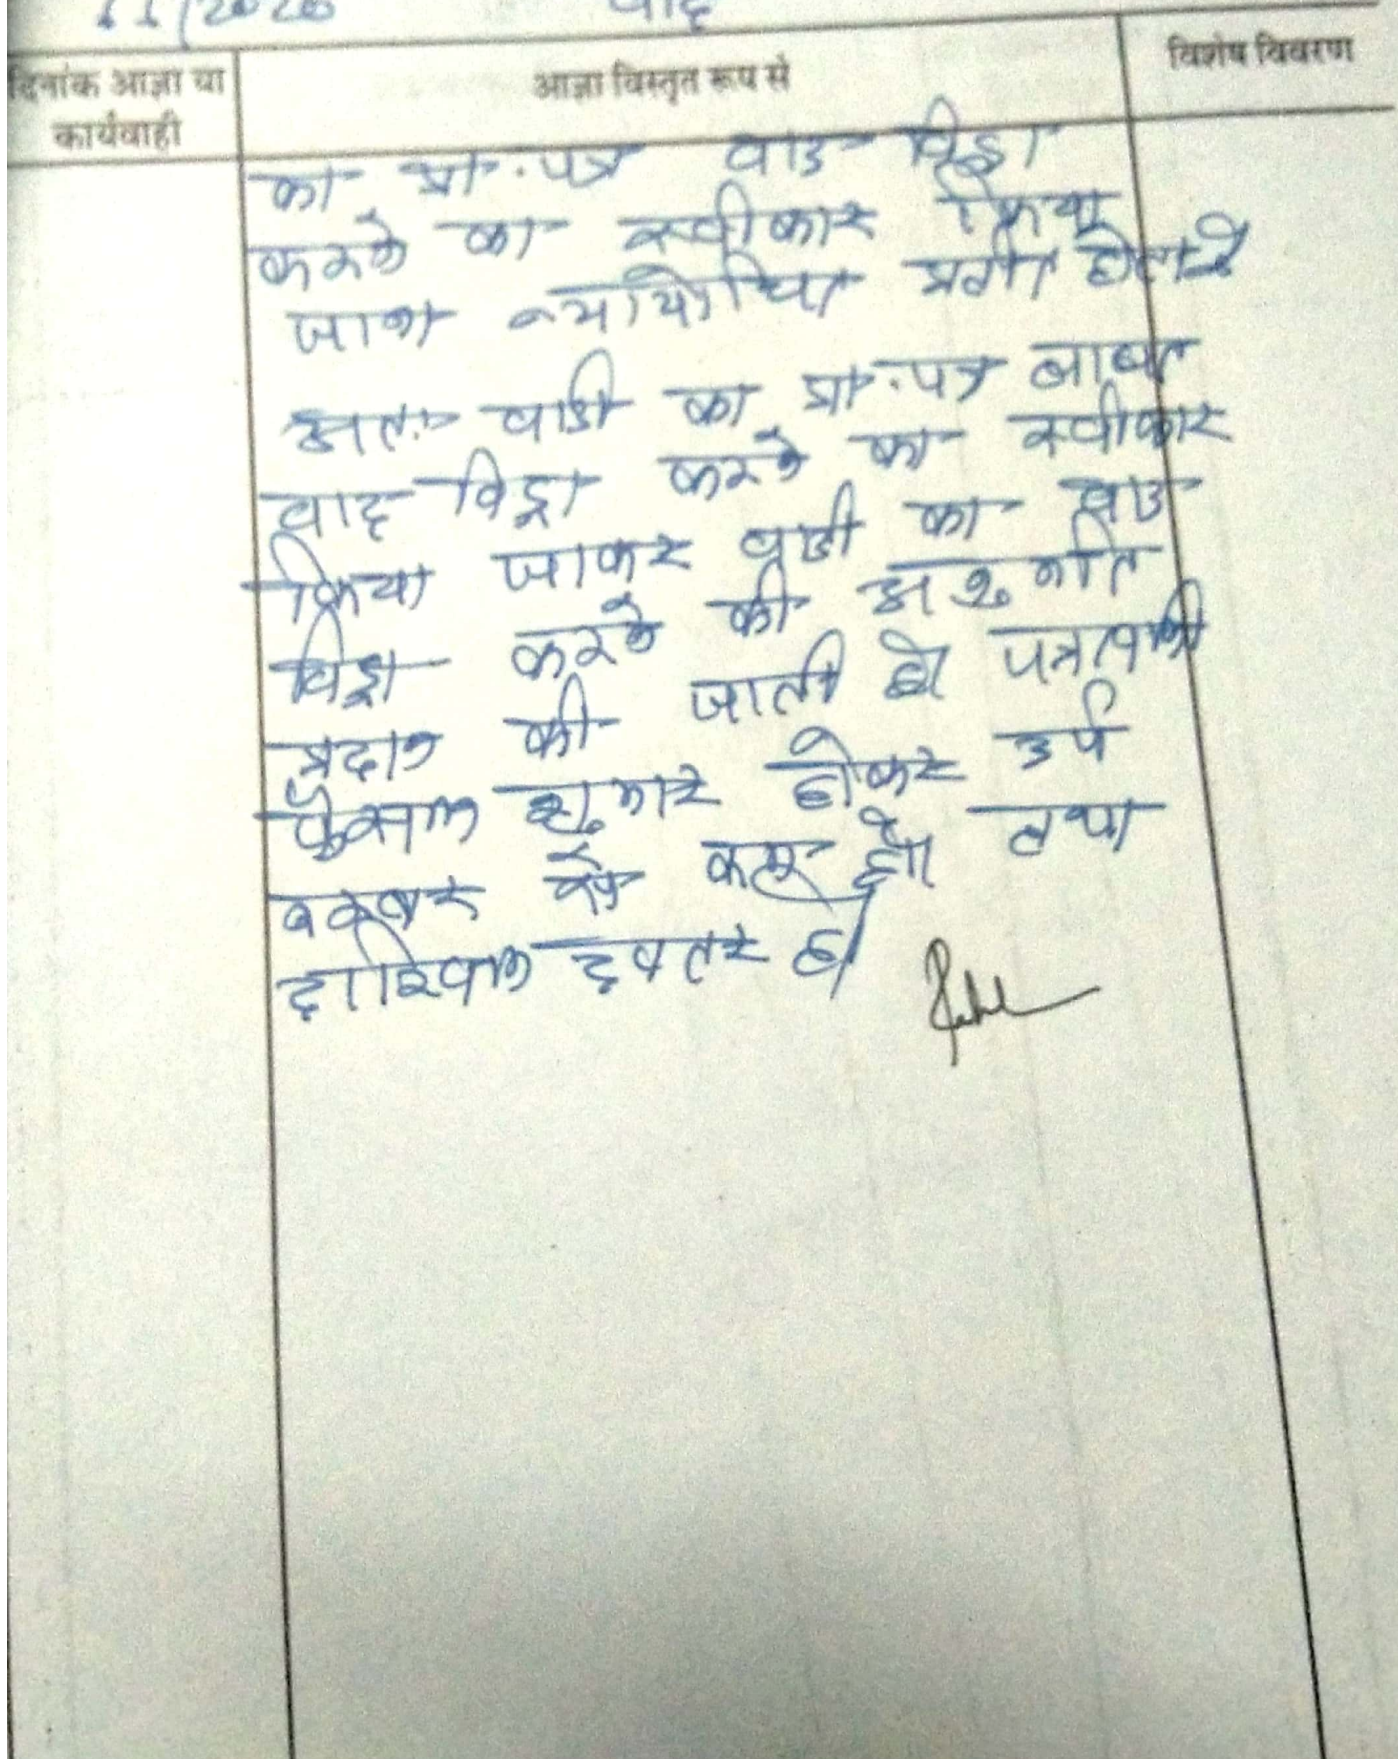 11/2020 वाद
दिनांक आज्ञा या कार्यवाही
आज्ञा विस्तृत रूप से
विशेष विवरण
का प्रा.पत्र वाद विड्रा
करने का स्वीकार किया
जाना न्यायोचित प्रतीत होता है
अतः वादी का प्रा.पत्र बाबत
वाद विड्रा करने का स्वीकार
किया जाकर वादी का वाद
विड्रा करने की अनुमति
प्रदान की जाती है पत्रावली
फैसल शुमार होकर दर्ज
नम्बर से कम हो तथा
दाखिल दफ्तर हो